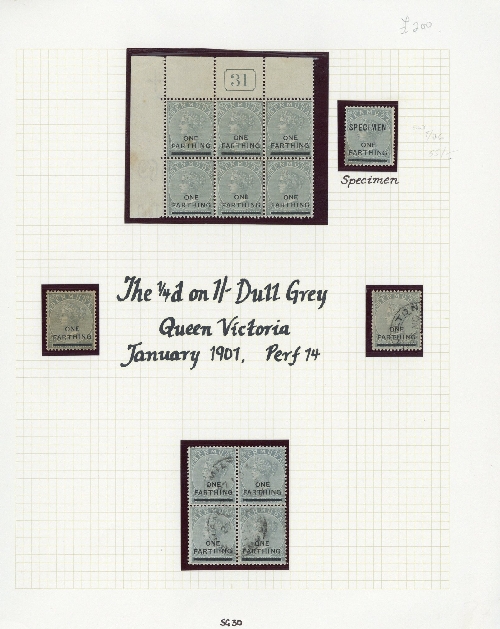 £200
31
BERMUDA BERMUDA BERMUDA
ONE FARTHING ONE FARTHING ONE FARTHING
ONE FARTHING ONE FARTHING ONE FARTHING
BERMUDA
SPECIMEN
ONE
FARTHING
Specimen
The ¼d on 1/- Dull Grey
Queen Victoria
January 1901, Perf 14
ONE
FARTHING
ONE
FARTHING
BERMUDA BERMUDA
ONE FARTHING ONE FARTHING
ONE FARTHING ONE FARTHING
SG30